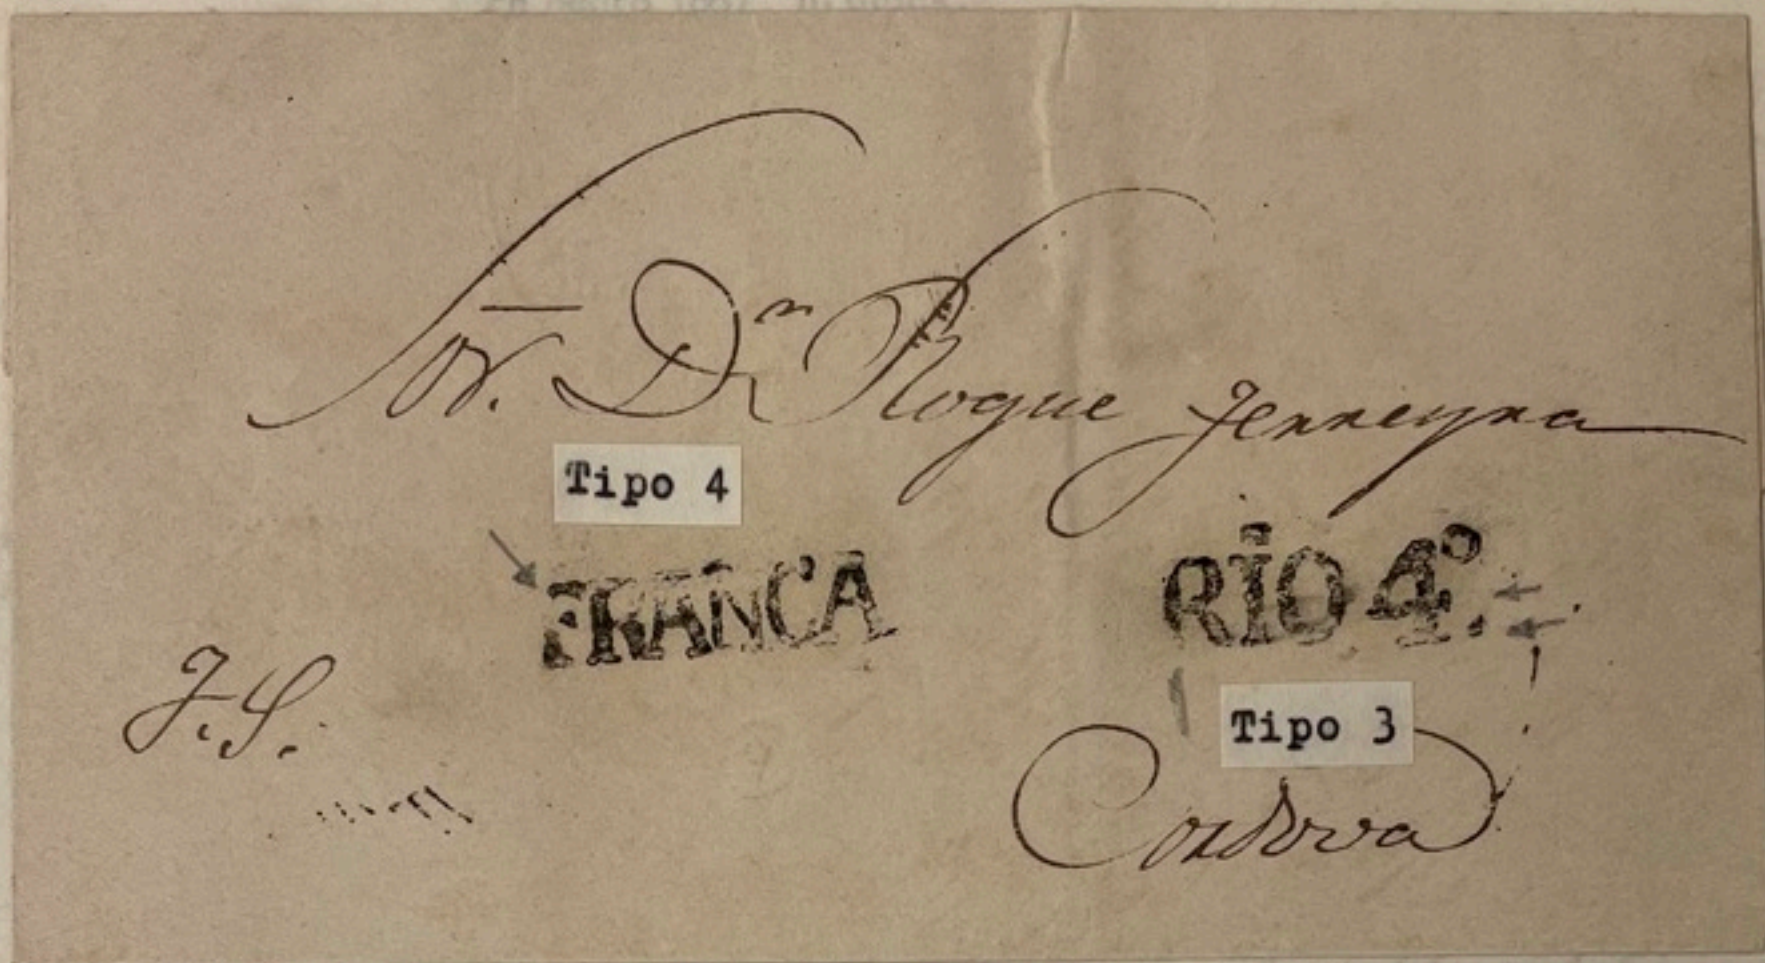 Sor. Dn Roque Ferreyra
Tipo 4
FRANCA RÍO 4º.
J.S.
Tipo 3
Cordova